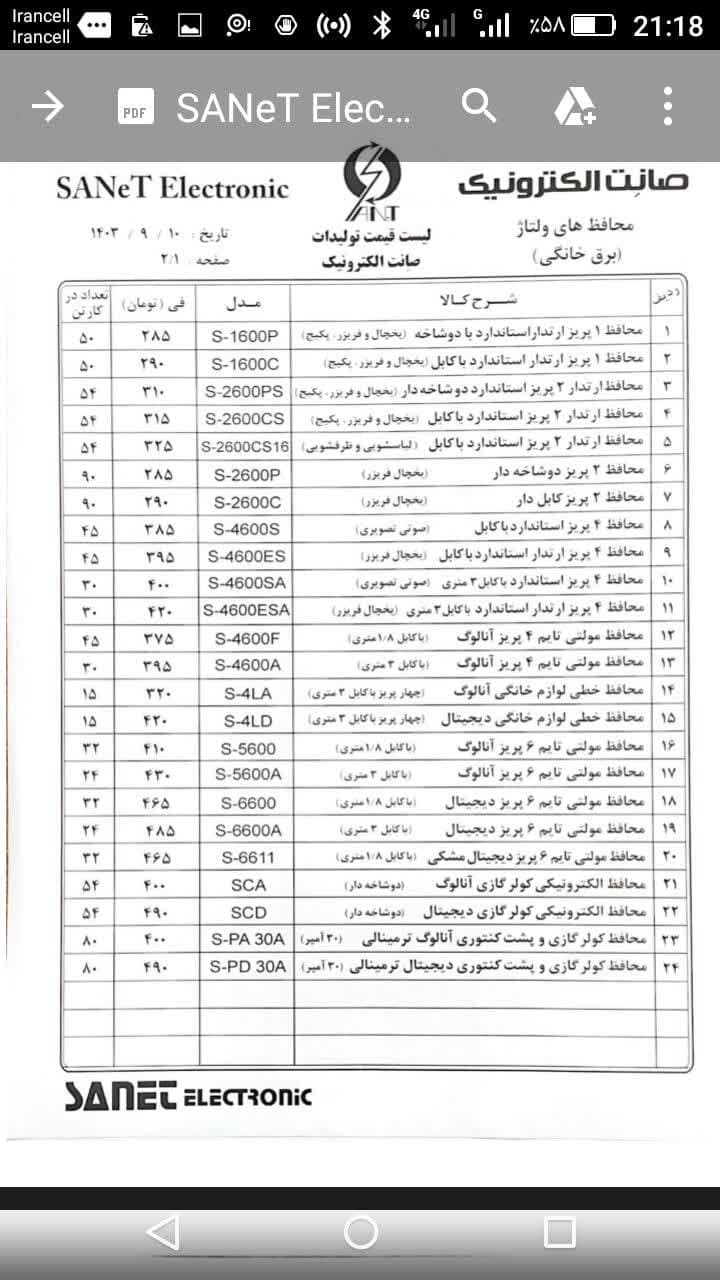 Irancell
Irancell
4G G ٪۵۸ 21:18
PDF SANeT Elec...
SANeT Electronic
صانِت الکترونیک
SANT
محافظ های ولتاژ
(برق خانگی)
لیست قیمت تولیدات
صانِت الکترونیک
تاریخ: ۱۰ / ۹ / ۱۴۰۳
صفحه: ۲/۱
ردیف شــرح کـالا مـدل فی (تومان) تعداد در کارتن
۱ محافظ ۱ پریز ارتداراستاندارد با دوشاخه (یخچال و فریزر، پکیج) S-1600P ۲۸۵ ۵۰
۲ محافظ ۱ پریز ارتدار استاندارد با کابل (یخچال و فریزر، پکیج) S-1600C ۲۹۰ ۵۰
۳ محافظ ارتدار ۲ پریز استاندارد دوشاخه دار (یخچال و فریزر، پکیج) S-2600PS ۳۱۰ ۵۴
۴ محافظ ارتدار ۲ پریز استاندارد با کابل (یخچال و فریزر، پکیج) S-2600CS ۳۱۵ ۵۴
۵ محافظ ارتدار ۲ پریز استاندارد با کابل (لباسشویی و ظرفشویی) S-2600CS16 ۳۲۵ ۵۴
۶ محافظ ۲ پریز دوشاخه دار (یخچال فریزر) S-2600P ۲۸۵ ۹۰
۷ محافظ ۲ پریز کابل دار (یخچال فریزر) S-2600C ۲۹۰ ۹۰
۸ محافظ ۴ پریز استاندارد با کابل (صوتی تصویری) S-4600S ۳۸۵ ۴۵
۹ محافظ ۴ پریز ارتدار استاندارد با کابل (یخچال فریزر) S-4600ES ۳۹۵ ۴۵
۱۰ محافظ ۴ پریز استاندارد با کابل ۳ متری (صوتی تصویری) S-4600SA ۴۰۰ ۳۰
۱۱ محافظ ۴ پریز ارتدار استاندارد با کابل ۳ متری (یخچال فریزر) S-4600ESA ۴۲۰ ۳۰
۱۲ محافظ مولتی تایم ۴ پریز آنالوگ (با کابل ۱/۸ متری) S-4600F ۳۷۵ ۴۵
۱۳ محافظ مولتی تایم ۴ پریز آنالوگ (با کابل ۳ متری) S-4600A ۳۹۵ ۳۰
۱۴ محافظ خطی لوازم خانگی آنالوگ (چهار پریز با کابل ۳ متری) S-4LA ۳۲۰ ۱۵
۱۵ محافظ خطی لوازم خانگی دیجیتال (چهار پریز با کابل ۳ متری) S-4LD ۴۲۰ ۱۵
۱۶ محافظ مولتی تایم ۶ پریز آنالوگ (با کابل ۱/۸ متری) S-5600 ۴۱۰ ۳۲
۱۷ محافظ مولتی تایم ۶ پریز آنالوگ (با کابل ۳ متری) S-5600A ۴۳۰ ۲۴
۱۸ محافظ مولتی تایم ۶ پریز دیجیتال (با کابل ۱/۸ متری) S-6600 ۴۶۵ ۳۲
۱۹ محافظ مولتی تایم ۶ پریز دیجیتال (با کابل ۳ متری) S-6600A ۴۸۵ ۲۴
۲۰ محافظ مولتی تایم ۶ پریز دیجیتال مشکی (با کابل ۱/۸ متری) S-6611 ۴۶۵ ۳۲
۲۱ محافظ الکترونیکی کولر گازی آنالوگ (دوشاخه دار) SCA ۴۰۰ ۵۴
۲۲ محافظ الکترونیکی کولر گازی دیجیتال (دوشاخه دار) SCD ۴۹۰ ۵۴
۲۳ محافظ کولر گازی و پشت کنتوری آنالوگ ترمینالی (۳۰ آمپر) S-PA 30A ۴۰۰ ۸۰
۲۴ محافظ کولر گازی و پشت کنتوری دیجیتال ترمینالی (۳۰ آمپر) S-PD 30A ۴۹۰ ۸۰
SANET ELECTRONIC